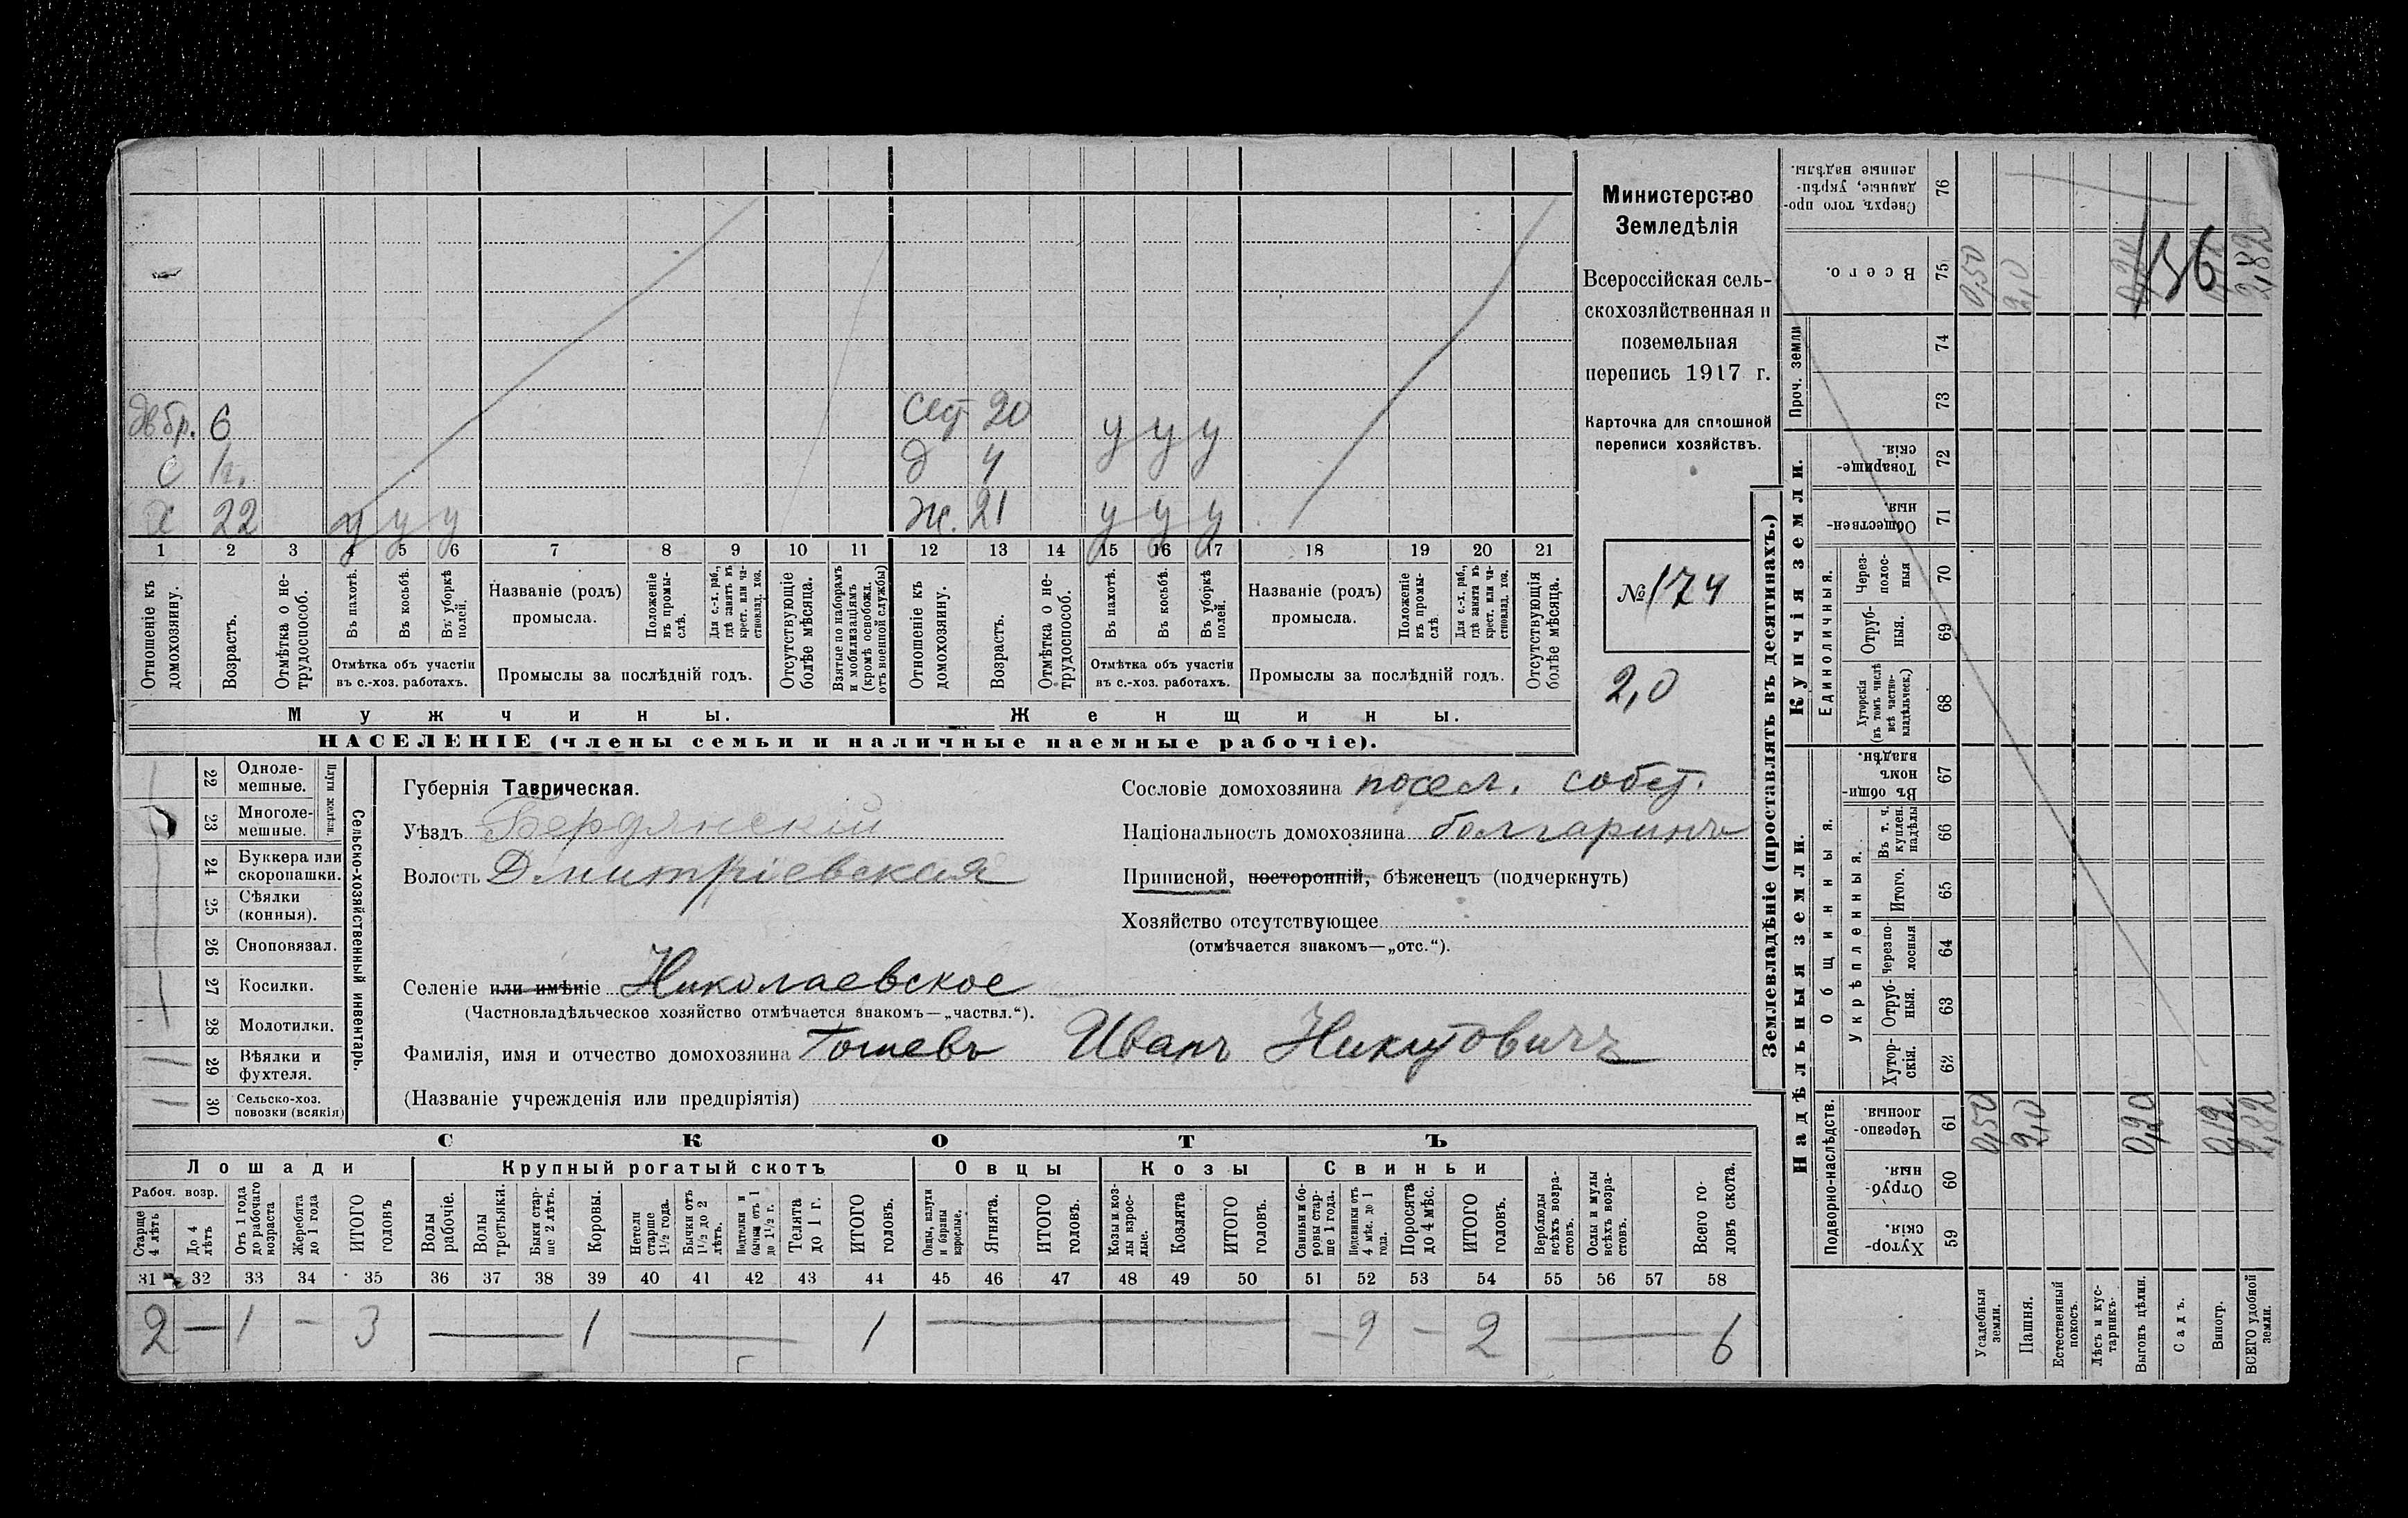 Министерство
Земледѣлія
Всероссійская сель-
скохозяйственная и
поземельная
перепись 1917 г.
Карточка для сплошной
переписи хозяйствъ.
№ 174
2,0
дв бр. 6
с
х 22 у у у
сест 20 у у у
д 4
ж. 21 у у у
1 2 3 4 5 6 7 8 9 10 11 12 13 14 15 16 17 18 19 20 21
Отношеніе къ домохозяину.
Возрастъ.
Отмѣтка о не-трудоспособ.
Въ пахотѣ.
Въ косьбѣ.
Въ уборкѣ полей.
Отмѣтка объ участіи
въ с.-хоз. работахъ.
Названіе (родъ)
промысла.
Положеніе въ промы-слѣ.
Для с.-х. раб., гдѣ занятъ въ крест. или ча-стновлад. хоз.
Промыслы за послѣдній годъ.
Отсутствующіе болѣе мѣсяца.
Взятые по наборамъ и мобилизаціямъ (кромѣ освобожд. отъ военной службы)
Отношеніе къ домохозяину.
Возрастъ.
Отмѣтка о не-трудоспособ.
Въ пахотѣ.
Въ косьбѣ.
Въ уборкѣ полей.
Отмѣтка объ участіи
въ с.-хоз. работахъ.
Названіе (родъ)
промысла.
Положеніе въ промы-слѣ.
Для с.-х. раб., гдѣ занята въ крест. или ча-стновлад. хоз.
Промыслы за послѣдній годъ.
Отсутствующія болѣе мѣсяца.
Мужчины.
Женщины.
НАСЕЛЕНІЕ (члены семьи и наличные наемные рабочіе).
Сельско-хозяйственный инвентарь.
Плуги желѣзн.
22 Одноле-мешные.
23 Многоле-мешные.
24 Буккера или скоропашки.
25 Сѣялки (конныя).
26 Сноповязал.
27 Косилки.
28 Молотилки.
29 Вѣялки и фухтеля.
30 Сельско-хоз. повозки (всякія)
Губернія Таврическая.
Уѣздъ Бердянскій
Волость Дмитріевская
Сословіе домохозяина посел. собст.
Національность домохозяина болгаринъ
Приписной, посторонній, бѣженецъ (подчеркнуть)
Хозяйство отсутствующее
(отмѣчается знакомъ—„отс.“).
Селеніе или имѣніе Николаевское
(Частновладѣльческое хозяйство отмѣчается знакомъ—„частвл.“).
Фамилія, имя и отчество домохозяина Тошевъ Иванъ Никитовичъ
(Названіе учрежденія или предпріятія)
СКОТЪ
Лошади Крупный рогатый скотъ Овцы Козы Свиньи
Рабоч. возр.
Старше 4 лѣтъ
До 4 лѣтъ
Отъ 1 года до рабочаго возраста
Жеребята до 1 года
ИТОГО головъ
Волы рабочіе.
Волы третьяки.
Быки стар-ше 2 лѣтъ.
Коровы.
Нетели старше 1½ года.
Бычки отъ 1½ до 2 лѣтъ.
Подтелки и бычки отъ 1 до 1½ г.
Телята до 1 г.
ИТОГО головъ.
Овцы, валухи и бараны взрослые.
Ягнята.
ИТОГО головъ.
Козы и коз-лы взрос-лые.
Козлята
ИТОГО головъ.
Свиньи и бо-ровы стар-ше 1 года.
Подсвинки отъ 4 мѣс. до 1 года.
Поросята до 4 мѣс.
ИТОГО головъ.
Верблюды всѣхъ возра-стовъ.
Ослы и мулы всѣхъ возра-стовъ.
Всего го-ловъ скота.
31 32 33 34 35 36 37 38 39 40 41 42 43 44 45 46 47 48 49 50 51 52 53 54 55 56 57 58
2 — 1 — 3 — 1 — 1 — — 2 — 2 — 6
Землевладѣніе (проставлять въ десятинахъ.)
Сверхъ того про-данные, укрѣп-ленные надѣлы. 76
Всего. 75
Проч. земли 74 73
Купчія земли.
Товарище-скія. 72
Обществен-ныя. 71
Единоличныя.
Через-полос-ныя 70
Отруб-ныя. 69
Хуторскія (въ томъ числѣ всѣ частно-владѣльческ.) 68
Надѣльныя земли.
Общинныя.
Въ общин-номъ владѣн. 67
Укрѣпленныя.
Въ т. ч. куплен. надѣлы 66
Итого. 65
Черезпо-лосныя 64
Отруб-ныя. 63
Хутор-скія. 62
Подворно-наслѣдств.
Черезпо-лосныя. 61
Отруб-ныя. 60
Хутор-скія. 59
Усадебныя земли.
Пашня.
Естественный покосъ.
Лѣсъ и кус-тарникъ.
Выгонъ цѣлин.
Садъ.
Виногр.
ВСЕГО удобной земли.
0,50 2,0 0,20 0,12 2,82
0,50 2,0 2,82